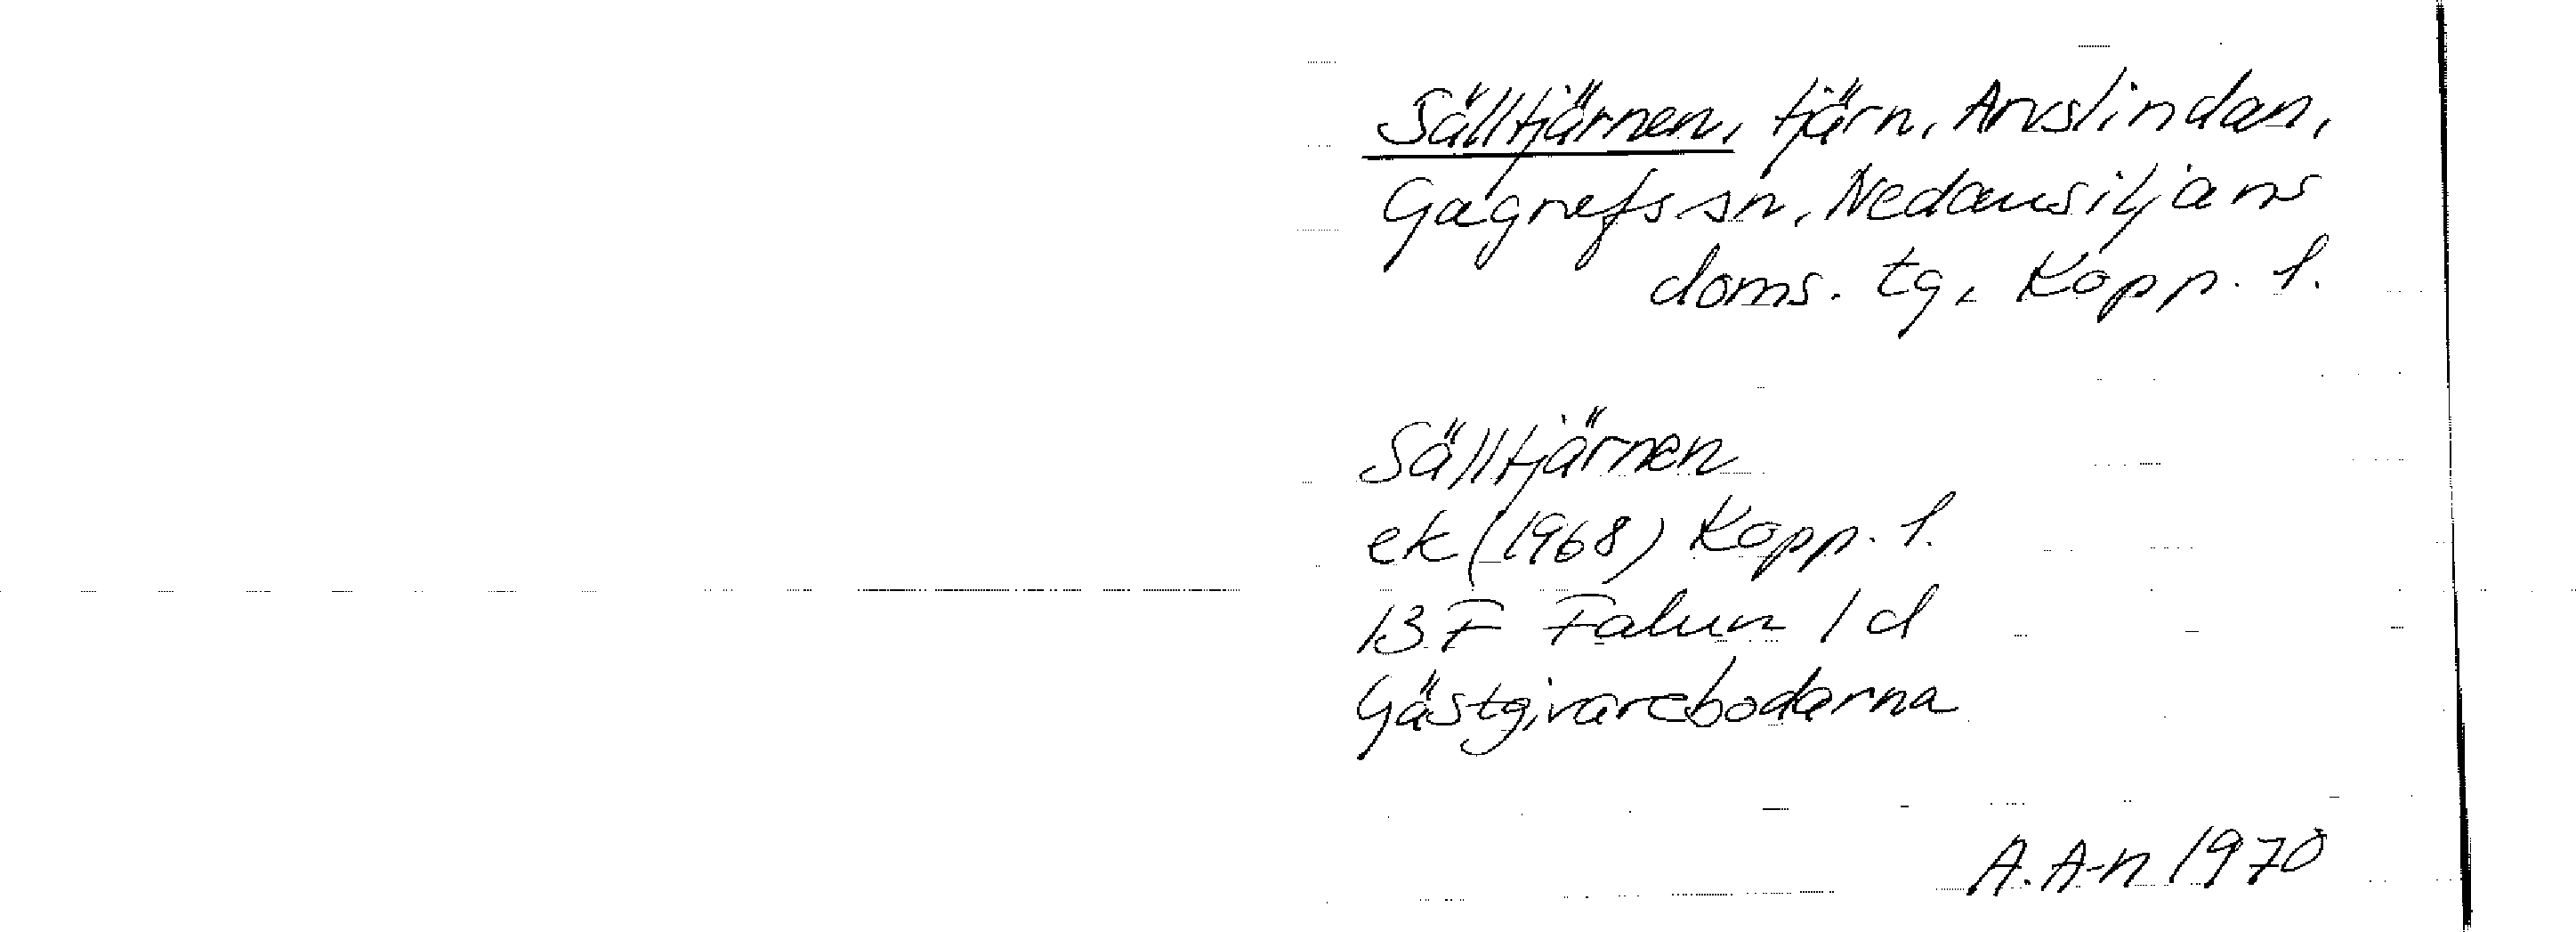 Sälltjärnen, tjärn, Arvslindan,
Gagnefs sn, Nedansiljans
doms. tg, Kopp. l.
Sälltjärnen
ek (1968) Kopp. l.
13 F Falun 1 d
Gästgivarebodarna
A. A-n 1970